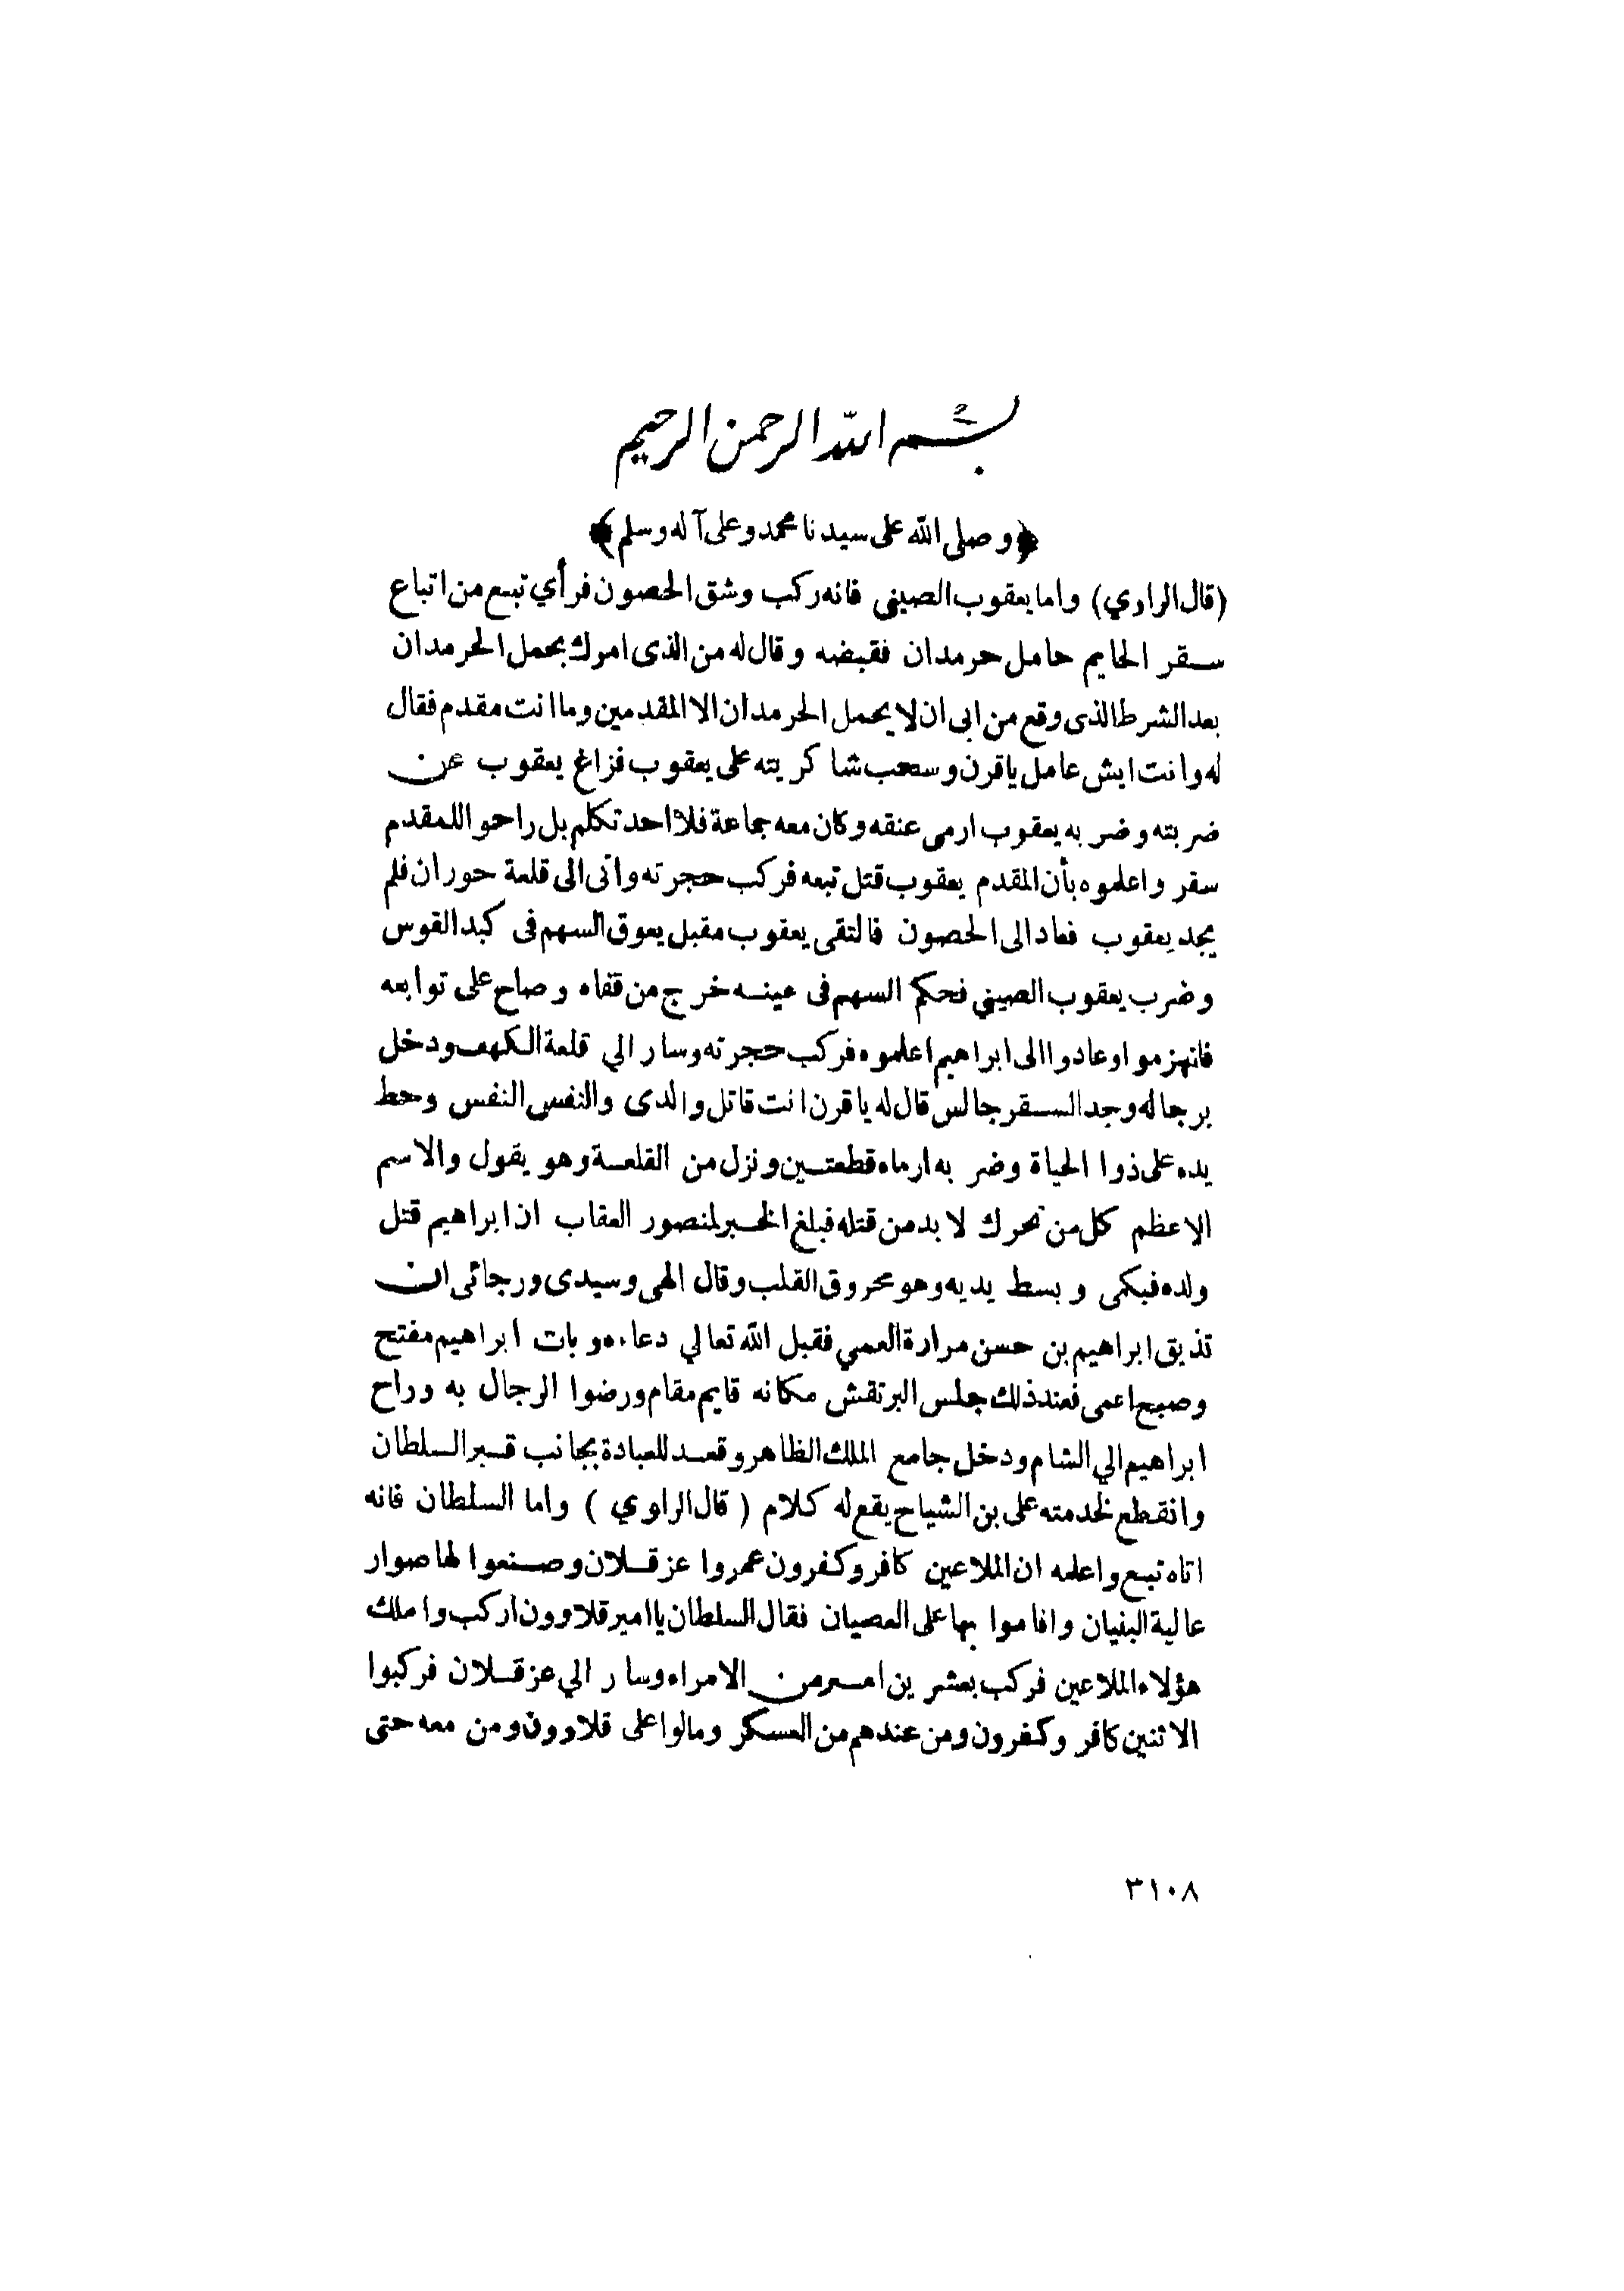 بسم الله الرحمن الرحيم
﴿وصلى الله على سيدنا محمد وعلى آله وسلم﴾
(قال الراوي) واما يعقوب الصيني فانه ركب وشق الحصون فرأي تبع من اتباع
سقر الحايم حامل حرمدان فقبضه وقال له من الذى امرك بحمل الحرمدان
بعد الشرط الذى وقع من ابى ان لا يحمل الحرمدان الا المقدمين وما انت مقدم فقال
له وانت ايش عامل ياقرن وسحب شاكريته على يعقوب فزاغ يعقوب عن
ضربته وضربه يعقوب ارمى عنقه وكان معه جماعة فلا احد تكلم بل راحوا للمقدم
سقر واعلموه بأن المقدم يعقوب قتل تبعه فركب حجرته وأتى الى قلعة حوران فلم
يجد يعقوب فعاد الى الحصون فالتقى يعقوب مقبل يعوق السهم فى كبد القوس
وضرب يعقوب الصيني فحكم السهم فى عينه خرج من قفاه وصاح على توابعه
فانهزموا وعادوا الى ابراهيم اعلموه فركب حجرته وسار الي قلعة الكهف ودخل
برجاله وجد السقر جالس قال له ياقرن انت قاتل والدى والنفس النفس وحط
يده على ذوا الحياة وضربه ارماه قطعتين ونزل من القلعة وهو يقول والاسم
الاعظم كل من تحرك لا بد من قتله فبلغ الخبر لمنصور العقاب ان ابراهيم قتل
ولده فبكى وبسط يديه وهو محروق القلب وقال الهى وسيدى ورجائى ان
تذيق ابراهيم بن حسن مرارة العمى فقبل الله تعالي دعاءه وبات ابراهيم مفتح
وصبح اعمى فعند ذلك جلس البرتقش مكانه قايم مقام ورضوا الرجال به وراح
ابراهيم الي الشام ودخل جامع الملك الظاهر وقعد للعبادة بجانب قبر السلطان
وانقطع لخدمته على بن الشياح يقع له كلام ( قال الراوي ) واما السلطان فانه
اتاه تبع واعلمه ان الملاعين كافر وكفرون عمروا عزقلان وصنعوا لها صوار
عالية البنيان واقاموا بها على العصيان فقال السلطان ياامير قلاوون اركب واملك
هؤلاء الملاعين فركب بعشرين امير من الامراء وسار الي عزقلان فركبوا
الاثنين كافر وكفرون ومن عندهم من العسكر ومالوا على قلاوون ومن معه حتى
٣١٠٨